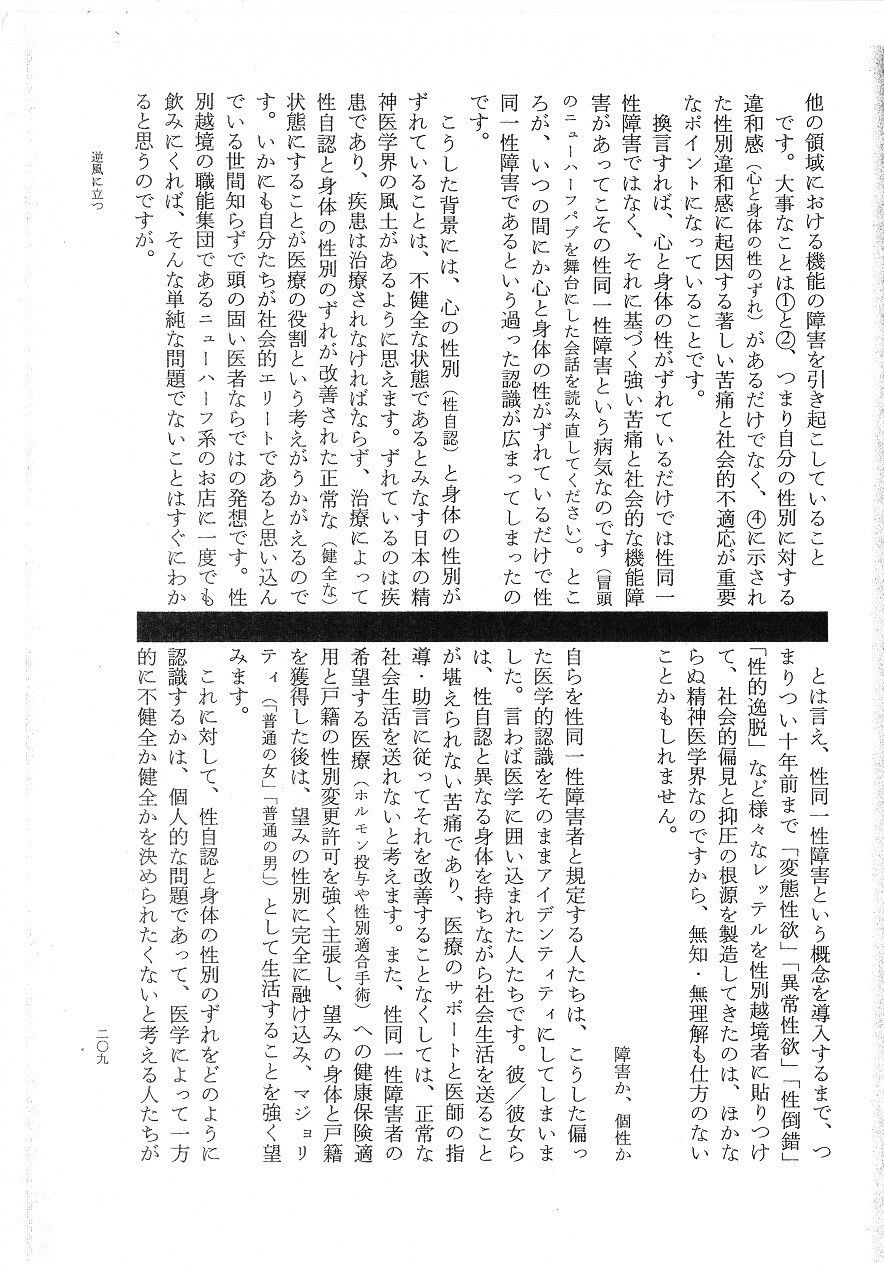 他の領域における機能の障害を引き起こしていること
です。大事なことは①と②、つまり自分の性別に対する
違和感（心と身体の性のずれ）があるだけでなく、④に示され
た性別違和感に起因する著しい苦痛と社会的不適応が重要
なポイントになっていることです。
換言すれば、心と身体の性がずれているだけでは性同一
性障害ではなく、それに基づく強い苦痛と社会的な機能障
害があってこその性同一性障害という病気なのです（冒頭
のニューハーフパブを舞台にした会話を読み直してください）。とこ
ろが、いつの間にか心と身体の性がずれているだけで性
同一性障害であるという過った認識が広まってしまったの
です。
こうした背景には、心の性別（性自認）と身体の性別が
ずれていることは、不健全な状態であるとみなす日本の精
神医学界の風土があるように思えます。ずれているのは疾
患であり、疾患は治療されなければならず、治療によって
性自認と身体の性別のずれが改善された正常な（健全な）
状態にすることが医療の役割という考えがうかがえるので
す。いかにも自分たちが社会的エリートであると思い込ん
でいる世間知らずで頭の固い医者ならではの発想です。性
別越境の職能集団であるニューハーフ系のお店に一度でも
飲みにくれば、そんな単純な問題でないことはすぐにわか
ると思うのですが。
とは言え、性同一性障害という概念を導入するまで、つ
まりつい十年前まで「変態性欲」「異常性欲」「性倒錯」
「性的逸脱」など様々なレッテルを性別越境者に貼りつけ
て、社会的偏見と抑圧の根源を製造してきたのは、ほかな
らぬ精神医学界なのですから、無知・無理解も仕方のない
ことかもしれません。
障害か、個性か
自らを性同一性障害者と規定する人たちは、こうした偏っ
た医学的認識をそのままアイデンティティにしてしまいま
した。言わば医学に囲い込まれた人たちです。彼／彼女ら
は、性自認と異なる身体を持ちながら社会生活を送ること
が堪えられない苦痛であり、医療のサポートと医師の指
導・助言に従ってそれを改善することなくしては、正常な
社会生活を送れないと考えます。また、性同一性障害者の
希望する医療（ホルモン投与や性別適合手術）への健康保険適
用と戸籍の性別変更許可を強く主張し、望みの身体と戸籍
を獲得した後は、望みの性別に完全に融け込み、マジョリ
ティ（「普通の女」「普通の男」）として生活することを強く望
みます。
これに対して、性自認と身体の性別のずれをどのように
認識するかは、個人的な問題であって、医学によって一方
的に不健全か健全かを決められたくないと考える人たちが
逆風に立つ
二〇九